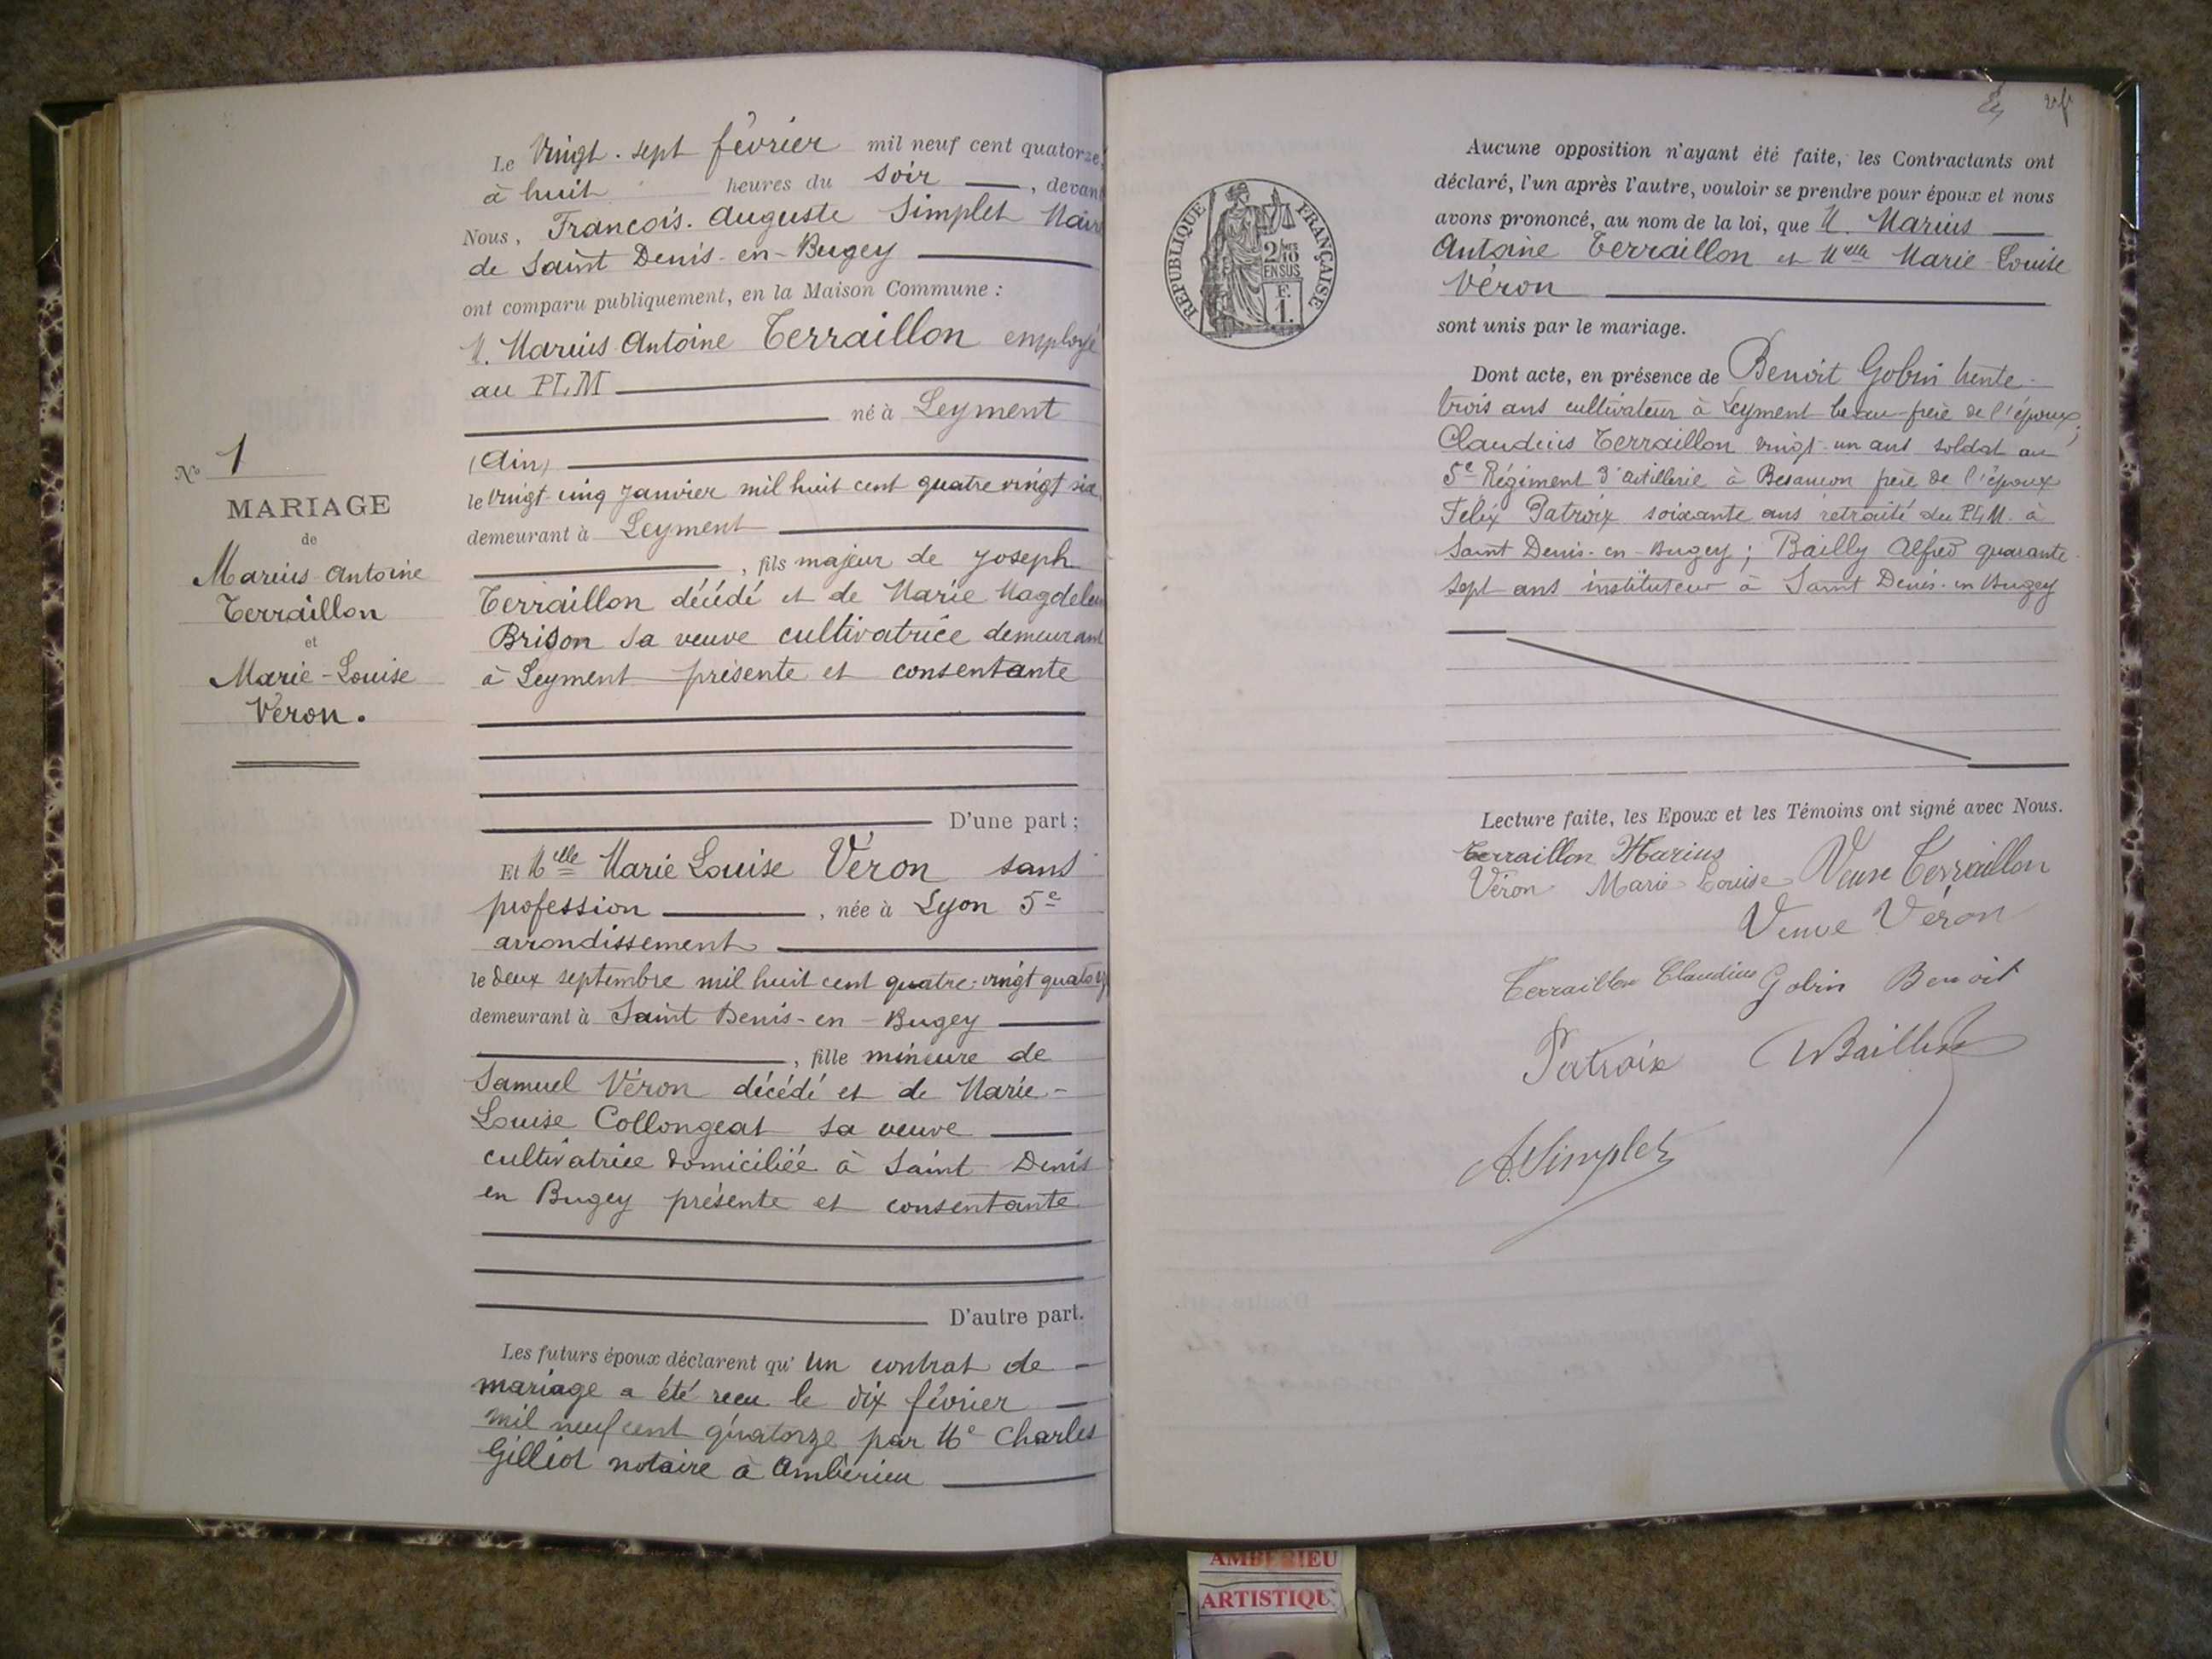 Le Vingt-sept février mil neuf cent quatorze,
à huit heures du soir, devant
Nous, François-Auguste Simplet Maire
de Saint Denis-en-Bugey
ont comparu publiquement, en la Maison Commune :
M. Marius Antoine Terraillon employé
au PLM
né à Leyment
(Ain)
le vingt-cinq janvier mil huit cent quatre vingt six
demeurant à Leyment
, fils majeur de Joseph
Terraillon décédé et de Marie Magdeleine
Brison sa veuve cultivatrice demeurant
à Leyment présente et consentante
D'une part ;
Et Melle Marie Louise Véron sans
profession , née à Lyon 5e
arrondissement
le deux septembre mil huit cent quatre-vingt quatorze
demeurant à Saint Denis-en-Bugey
, fille mineure de
Samuel Véron décédé et de Marie-
Louise Collongeat sa veuve
cultivatrice domiciliée à Saint Denis
en Bugey présente et consentante
D'autre part.
Les futurs époux déclarent qu'un contrat de
mariage a été reçu le dix février
mil neuf cent quatorze par Me Charles
Gilliot notaire à Ambérieu
No 1
MARIAGE
de
Marius Antoine
Terraillon
et
Marie-Louise
Véron.
RÉPUBLIQUE FRANÇAISE
2/10
EN SUS
F.
1.
Aucune opposition n'ayant été faite, les Contractants ont
déclaré, l'un après l'autre, vouloir se prendre pour époux et nous
avons prononcé, au nom de la loi, que M. Marius
Antoine Terraillon et Melle Marie-Louise
Véron
sont unis par le mariage.
Dont acte, en présence de Benoit Gobin trente-
trois ans cultivateur à Leyment beau-frère de l'époux;
Claudius Terraillon vingt-un ans soldat au
5e Régiment d'Artillerie à Besançon frère de l'époux
Félix Patroix soixante ans retraité du PLM. à
Saint Denis-en-Bugey ; Bailly Alfred quarante-
sept ans instituteur à Saint Denis-en Bugey
Lecture faite, les Epoux et les Témoins ont signé avec Nous.
Terraillon Marius
Véron Marie-Louise Veuve Terraillon
Veuve Véron
Terraillon Claudius Gobin Benoit
Patroix Bailly
A. Simplet
AMBERIEU
ARTISTIQU